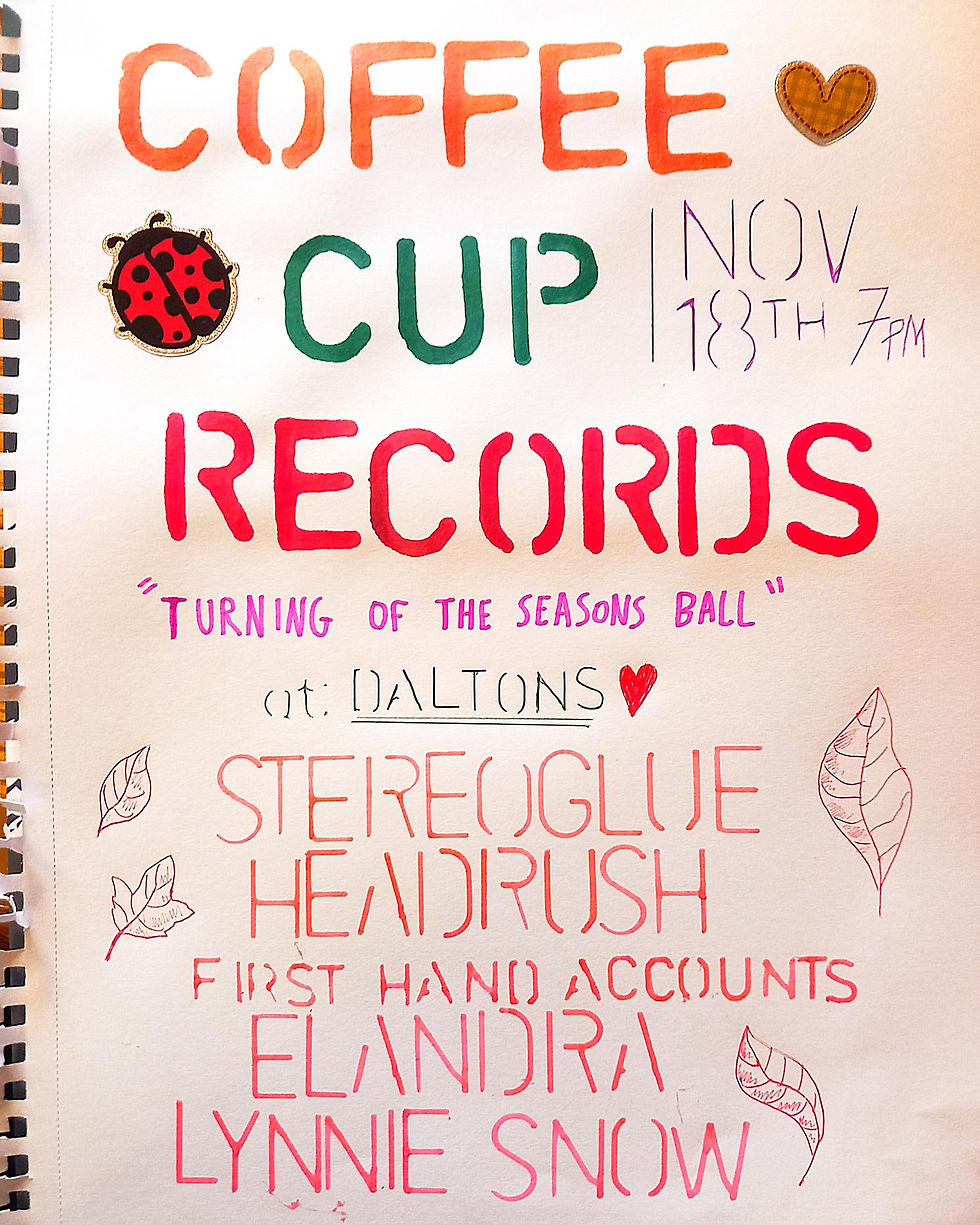 COFFEE
CUP
NOV
18TH 7PM
RECORDS
"TURNING OF THE SEASONS BALL"
at: DALTONS
STEREOGLUE
HEADRUSH
FIRST HAND ACCOUNTS
ELANDRA
LYNNIE SNOW